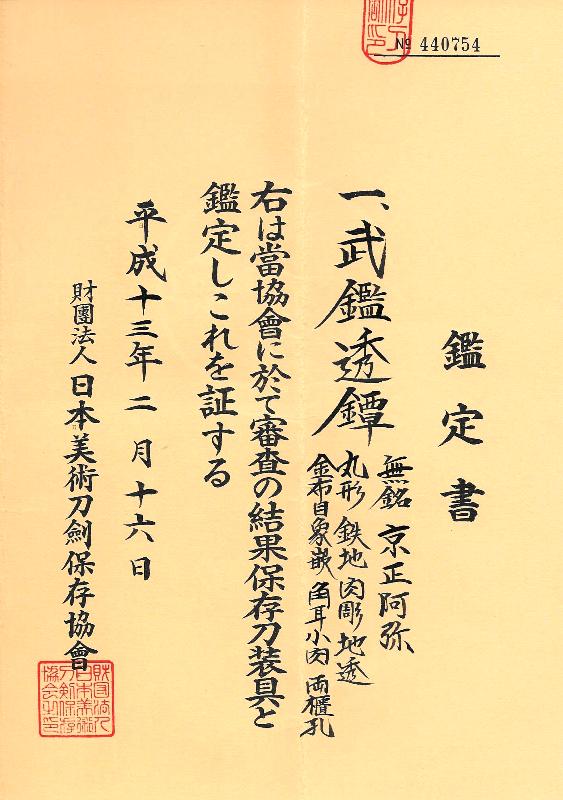 № 440754
鑑定書
一、武鑑透鐔
無銘 京正阿弥
丸形 鉄地 肉彫地透
金布目象嵌 角耳小肉 両櫃孔
右は當協會に於て審査の結果保存刀装具と
鑑定しこれを証する
平成十三年二月十六日
財團法人 日本美術刀劍保存協會